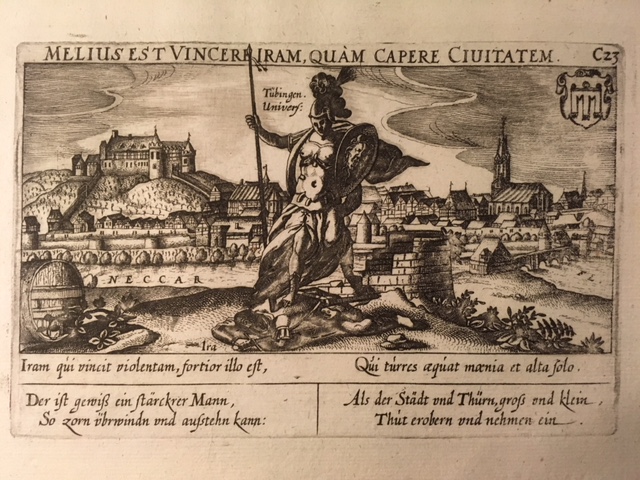 MELIUS EST VINCERE IRAM, QUÀM CAPERE CIUITATEM.
C23
Tübingen.
Univers:
NECCAR
Ira
Iram qui vincit violentam, fortior illo est,
Qui turres æquat mœnia et alta solo.
Der ist gewiß ein stärckrer Mann,
So zorn vbrwindn vnd ausstehn kann:
Als der Städt vnd Thürn, gross vnd klein,
Thut erobern vnd nehmen ein.